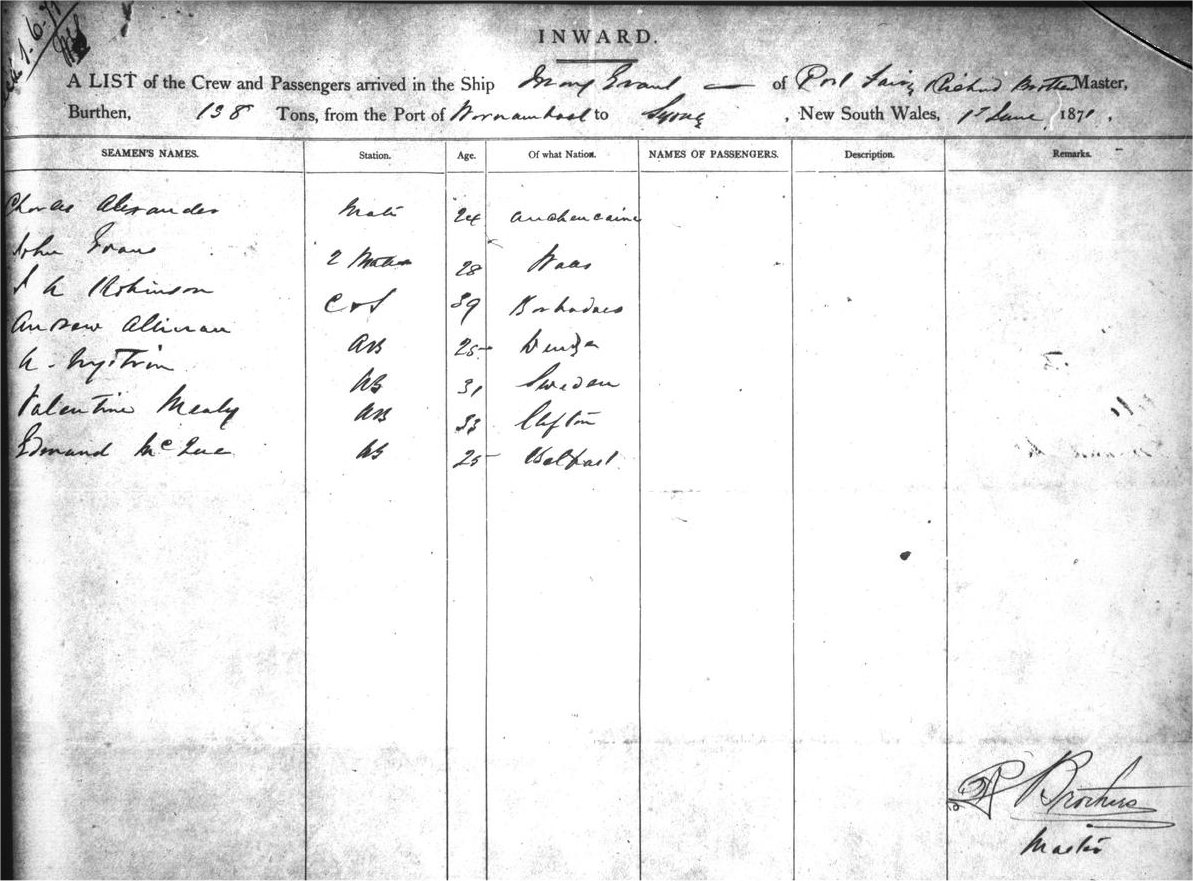 1.6.71
INWARD.
A LIST of the Crew and Passengers arrived in the Ship Mary Grant — of Port Fairy Richard Brothers Master,
Burthen, 138 Tons, from the Port of Warrnambool to Sydney, New South Wales, 1st June 1871,
SEAMEN'S NAMES. Station. Age. Of what Nation. NAMES OF PASSENGERS. Description. Remarks.
Charles Alexander Mate 24
John Evans 2 Mate 28
Robinson C & S 39 Barbadoes
Andrew AB 25
A. Nystrom AB 31 Sweden
Valentine Mealy AB 33 Clifton
Edmund Mc AB 25 Belfast
R Brothers
Master